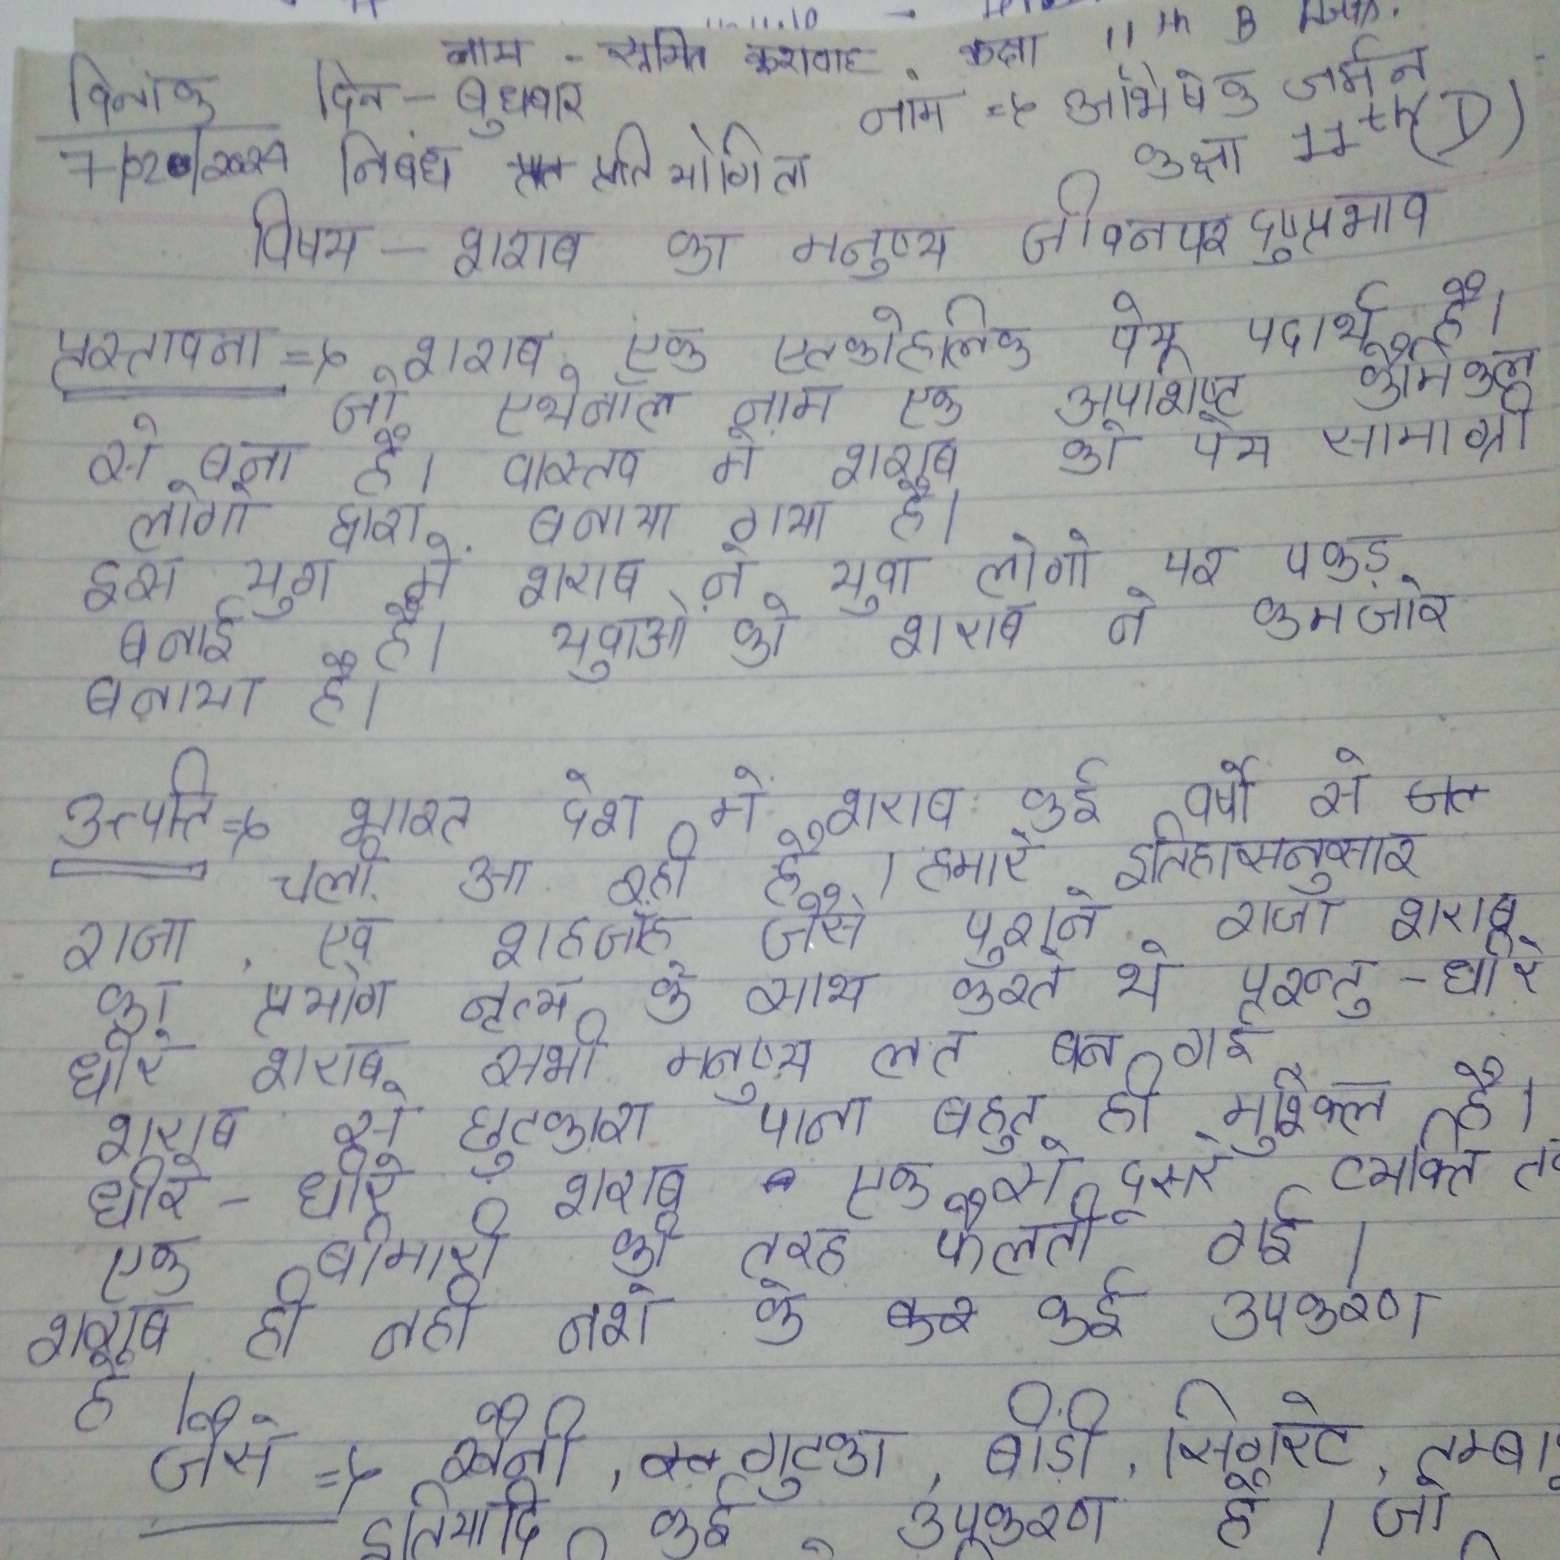 11.11.10
नाम - सुमित कुशवाह कक्षा 11th B
दिनांक दिन - बुधवार नाम => अभिषेक जर्मन
7/02/2024 निबंध प्रतियोगिता कक्षा 11th (D)
विषय - शराब का मनुष्य जीवन पर दुष्प्रभाव
प्रस्तावना => शराब एक एल्कोहलिक पेय पदार्थ है।
जो एथेनॉल नाम एक अपशिष्ट कैमिकल
से बना है। वास्तव में शराब को पेय सामाग्री
लोगो द्वारा बनाया गया है।
इस युग में शराब ने युवा लोगो पर पकड़
बनाई है। युवाओ को शराब ने कमजोर
बनाया है।
उत्पत्ति => भारत देश में शराब कई वर्षो से
चली आ रही है। हमारे इतिहासनुसार
राजा एव शाहजहॅ जैसे पुराने राजा शराब
का प्रयोग नृत्य के साथ करते थे परन्तु - धीरे
धीरे शराब सभी मनुष्य लत बन गई
शराब से छुटकारा पाना बहुत ही मुश्किल है।
धीरे - धीरे शराब एक से दूसरे व्यक्ति
एक बीमारी की तरह फैलती गई।
शराब ही नही नशे के कई उपकरण
है।
जैसे => खैनी, गुटका, बीड़ी, सिगरेट,
इतियादि कई उपकरण है। जो